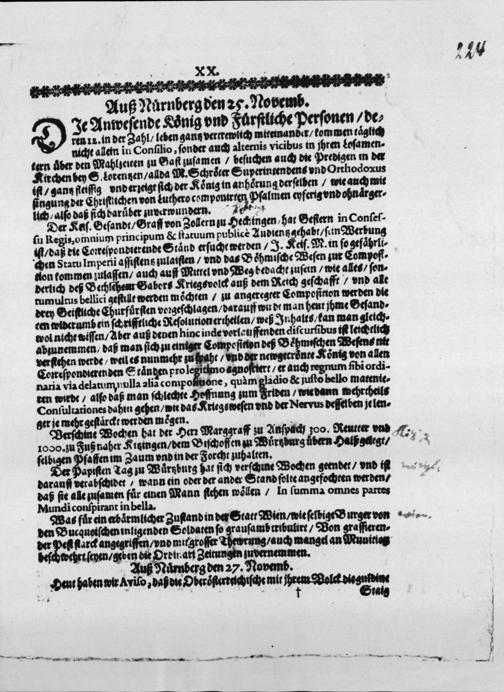 224
XX.
Auß Nürnberg den 25. Novemb.
DJe Anwesende König und Fürstliche Personen / de-
ren 12. in der Zahl / leben gantz vertrewlich miteinander / kommen täglich
nicht allein in Consilio, sonder auch alternis vicibus in jhren Losamen-
tern über den Mahlzeiten zu Gast zusamen / besuchen auch die Predigen in der
Kirchen bey S. Lorentzen / allda M. Schröter Superintendens vnd Orthodoxus
ist / gantz fleissig vnd erzeigt sich der König in anhörung derselben / wie auch mit
singung der Christlichen von Luthero componirten Psalmen eyferig vnd ohnärger-
lich / also daß sich darüber zuverwundern.
Der Keis. Gesandt / Graff von Zollern zu Hechingen / hat Gestern in Conses-
su Regis, omnium principum & statuum publicè Audientz gehabt / sein Werbung
ist / daß die Correspondierende Ständ ersucht werden / J. Keis. M. in so gefährli-
chen Statu Imperii assistentz zulaisten / vnd das Böhmische Wesen zur Compost-
sition kommen zulassen / auch auff Mittel vnd Weg bedacht zusein / wie alles / son-
derlich deß Bethlehem Gabors Kriegsvolck auß dem Reich geschafft / vnd alle
tumultus bellici gestillt werden möchten / zu angeregter Composition werden die
drey Geistliche Churfürsten vorgeschlagen / darauff wirdt man heut jhme Gesand-
ten widerumb ein schrifftliche Resolution ertheilen / weß Jnhalts / kan man gleich-
wol nicht wissen / Aber auß denen hinc inde vorlauffenden discursibus ist leichtlich
abzunemmen, daß man sich zu einiger Composition deß Böhmischen Wesens nit
verstehen werde / weil es nunmehr zu spaht / vnd der newgekrönte König von allen
Correspondierenden Ständen pro legitimo agnosciert / er auch regnum sibi ordi-
naria via delatum, nulla alia compositione, quàm gladio & justo bello matenie-
ren wirdt / also daß man schlechte Hoffnung zum Friden / wie dann mehrtheils
Consultationes dahin gehen / wie das Kriegswesen vnd der Nervus desselben je len-
ger je mehr gestärckt werden mögen.
Verschine Wochen hat der Herr Marggraff zu Anspach 300. Reutter vnd
1000. zu Fuß naher Kitzingen / dem Bischoffen zu Würtzburg übern Halß gelegt /
selbigen Pfaffen im Zaum vnd in der Forcht zuhalten.
Der Papisten Tag zu Würtzburg hat sich verschine Wochen geendet / vnd ist
darauff verabschidet / wann ein oder der ander Stand solte angefochten werden /
daß sie alle zusamen für einen Mann stehen wöllen / In summa omnes partes
Mundi conspirant in bella.
Was für ein erbärmlicher Zustand in der Statt Wien / wie selbige Burger von
den Bucquoischen inligenden Soldaten so grausamb tribulirt / Von grassieren-
der Pest starck angegriffen / vnd mit grosser Thewrung / auch mangel an Munition
beschwehrt seyen / geben die Ordinari Zeitungen zuvernemmen.
Auß Nürnberg den 27. Novemb.
Heut haben wir Aviso, daß die Oberösterreichische mit jhrem Volck die guldine
† Staig